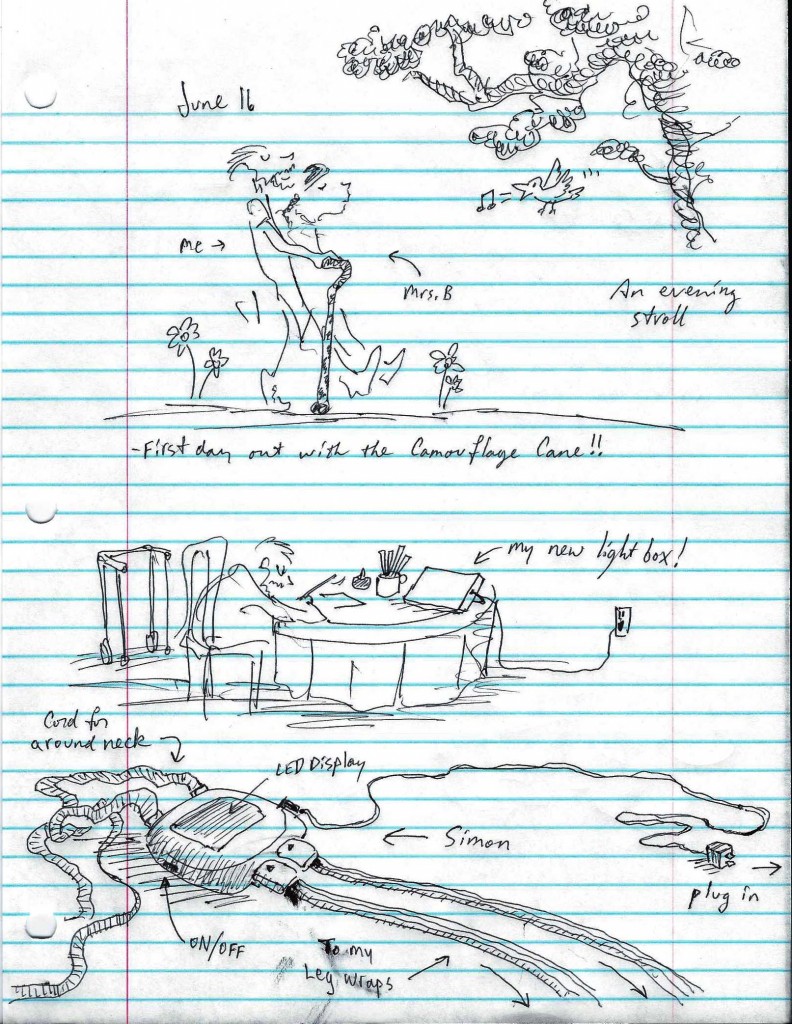 June 16
me →
Mrs. B
An evening
stroll
-First day out with the Camouflage Cane!!
my new light box!
Cord for
around neck
LED Display
← Simon
plug in
ON/OFF
To my
Leg wraps